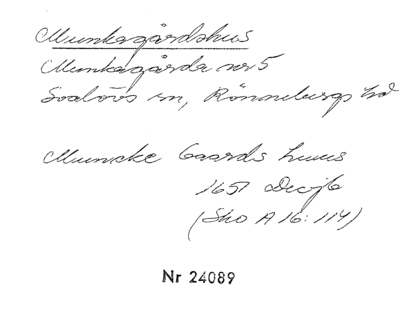 Munkagårdshus
Munkagårda nr 5
Svalövs sn, Rönnebergs hd
Muncke Gaards huus
1651 Decjb
(Sko A 16: 114)
Nr 24089